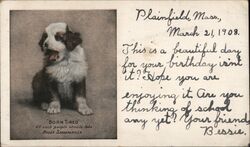 Plainfield, Mass,
March 21, 1908.
This is a beautiful day
for your birthday isn't
it? Hope you are
enjoying it Are you
thinking of school
any yet? Your friend
Bessie.
BORN TIRED